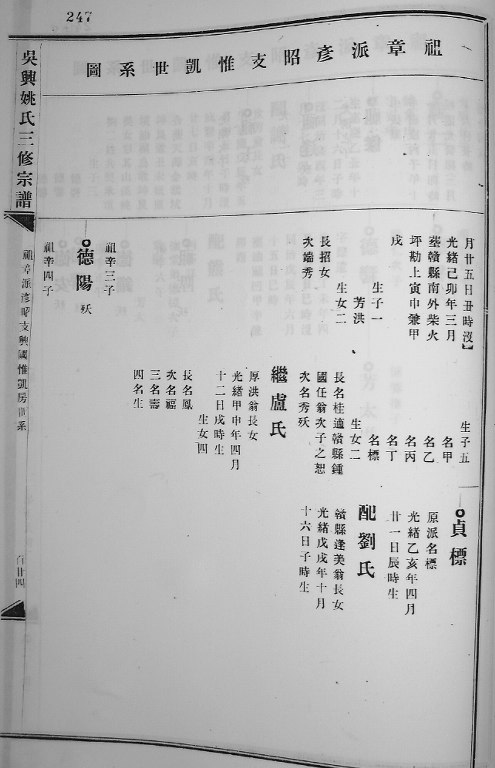 247
祖章派彥昭支惟凱世系圖
吳興姚氏三修宗譜
祖章派彥昭支興國惟凱房世系
百廿四
月廿五日丑時沒】
光緒己卯年三月
塟贛縣南外柴火
坪勘上寅申兼甲
戌
生子一
芳洪
生女二
長招女
次鑰秀
祖辛三子
德陽 殀
祖辛四子
生子五
名甲
名乙
名丙
名丁
名標
生女二
長名桂適贛縣鍾
國任翁次子之恕
次名秀殀
繼盧氏
厚洪翁長女
光緒甲申年四月
十二日戌時生
生女四
長名鳳
次名福
三名壽
四名生
貞標
原派名標
光緒乙亥年四月
廿一日辰時生
配劉氏
贛縣逢美翁長女
光緒戊戌年十月
十六日子時生